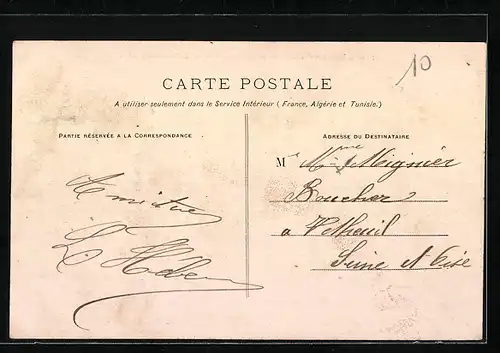 10
CARTE POSTALE
A utiliser seulement dans le Service Intérieur (France, Algérie et Tunisie.)
PARTIE RÉSERVÉE A LA CORRESPONDANCE
ADRESSE DU DESTINATAIRE
M Mignier
Boucher
à Vétheuil
Seine et Oise
Amitiés